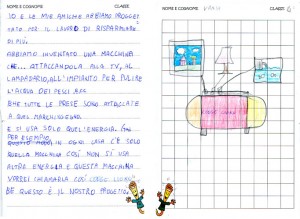 NOME E COGNOME CLASSE
IO E LE MIE AMICHE ABBIAMO PROGET
TATO PER IL LAVORO DI RISPARMIARE
DI PIÙ.
ABBIAMO INVENTATO UNA MACCHINA
CHE... ATTACCANDOLA ALLA TV, AL
LAMPADARIO, ALL'IMPIANTO PER PULIRE
L'ACQUA DEI PESCI
CHE TUTTE LE PRESE SONO ATTACCATE
A QUEL MACCHINEGGNO
E SI USA SOLO QUELL'ENERGIA.
PER ESEMPIO,
IN OGNI CASA C'È SOLO
QUELLA MACCHINA COSÌ NON SI USA
ALTRE ENERGIA E QUESTA MACCHINA
VORREI CHIAMARLA COSÌ
QUESTO È IL NOSTRO PROGETTO.
NOME E COGNOME CLASSE